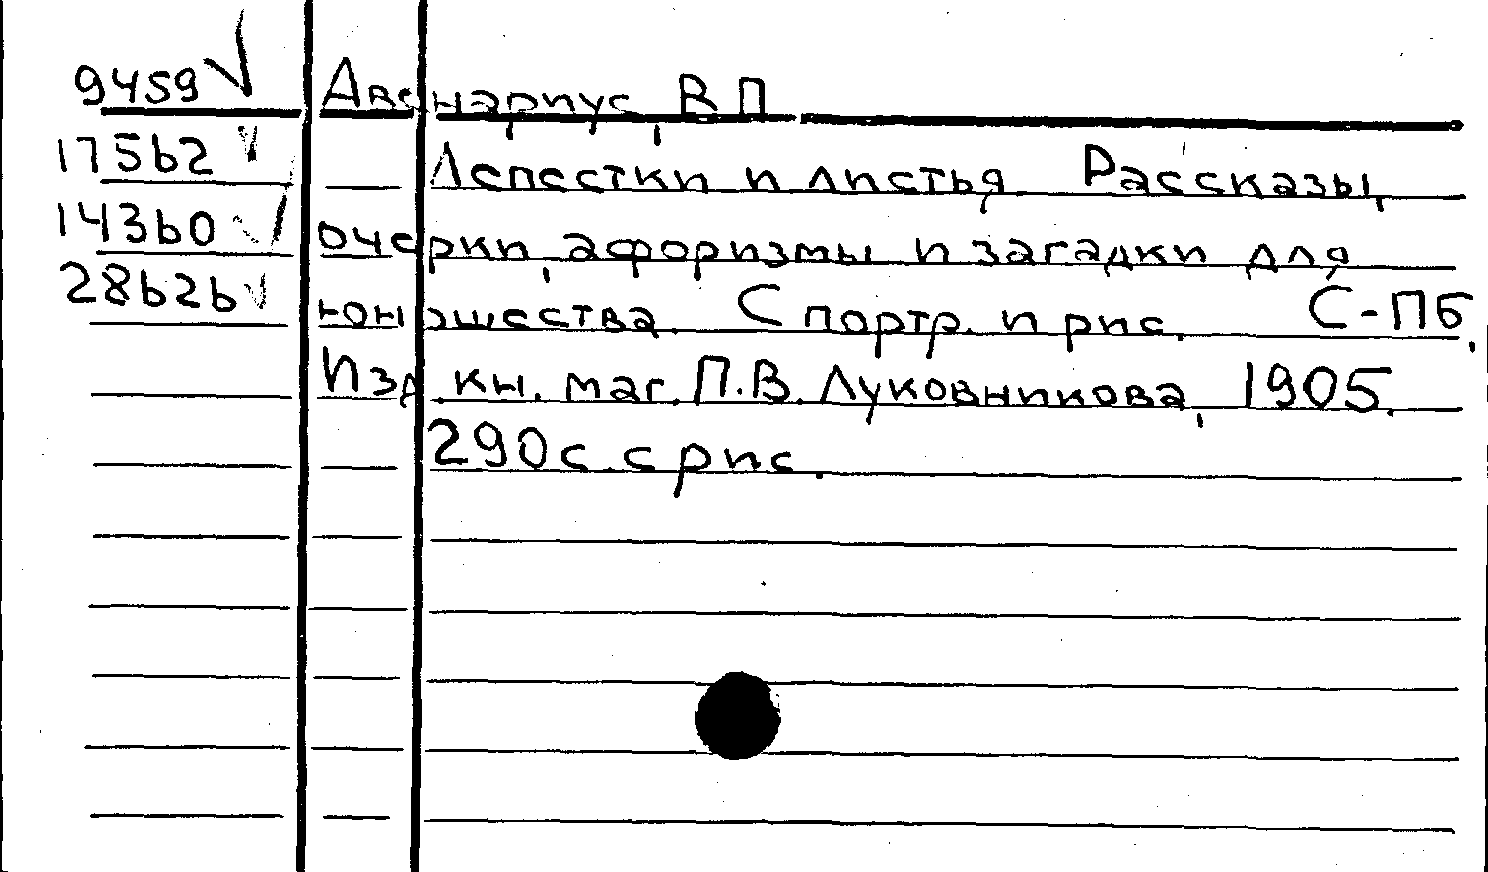 9459 Авенариус, В П
17562 Лепестки и листья. Рассказы,
14360 очерки, афоризмы и загадки для
28626 юношества. С портр. и рис. С-Пб,
Изд. кн. маг. П.В. Луковникова, 1905.
290с. с рис.